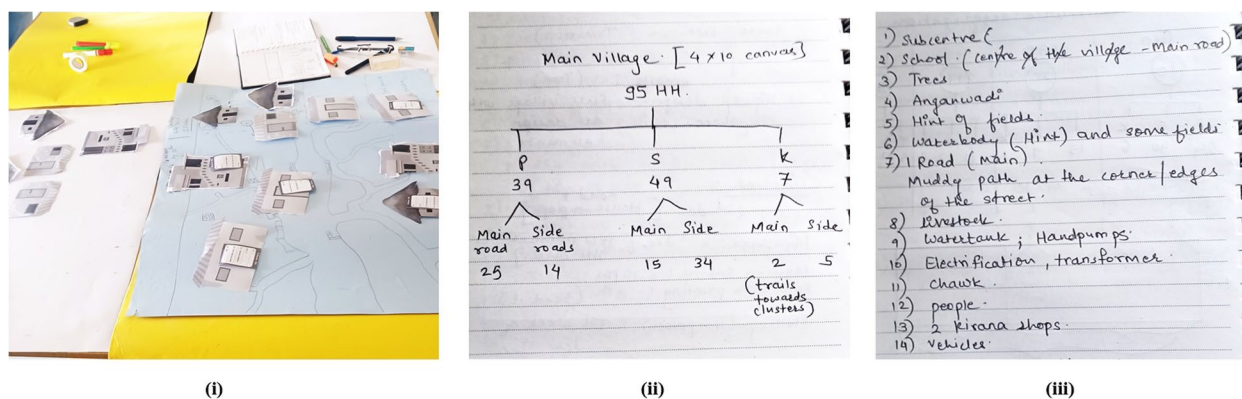 Main Village. [4 x 10 canvas]
95 HH.
P S K
39 49 7
Main road Side roads Main Side Main Side
25 14 15 34 2 5
(trails towards clusters)
1) Subcentre (
2) School. (centre of the village - Main road)
3) Trees
4) Anganwadi
5) Hint of fields.
6) Waterbody (Hint) and some fields
7) 1 Road (main).
Muddy path at the corner/edges
of the street.
8) livestock.
9) Watertank ; Handpumps.
10) Electrification, transformer.
11) chawk.
12) people.
13) 2 kirana shops.
14) vehicles.
(i)
(ii)
(iii)